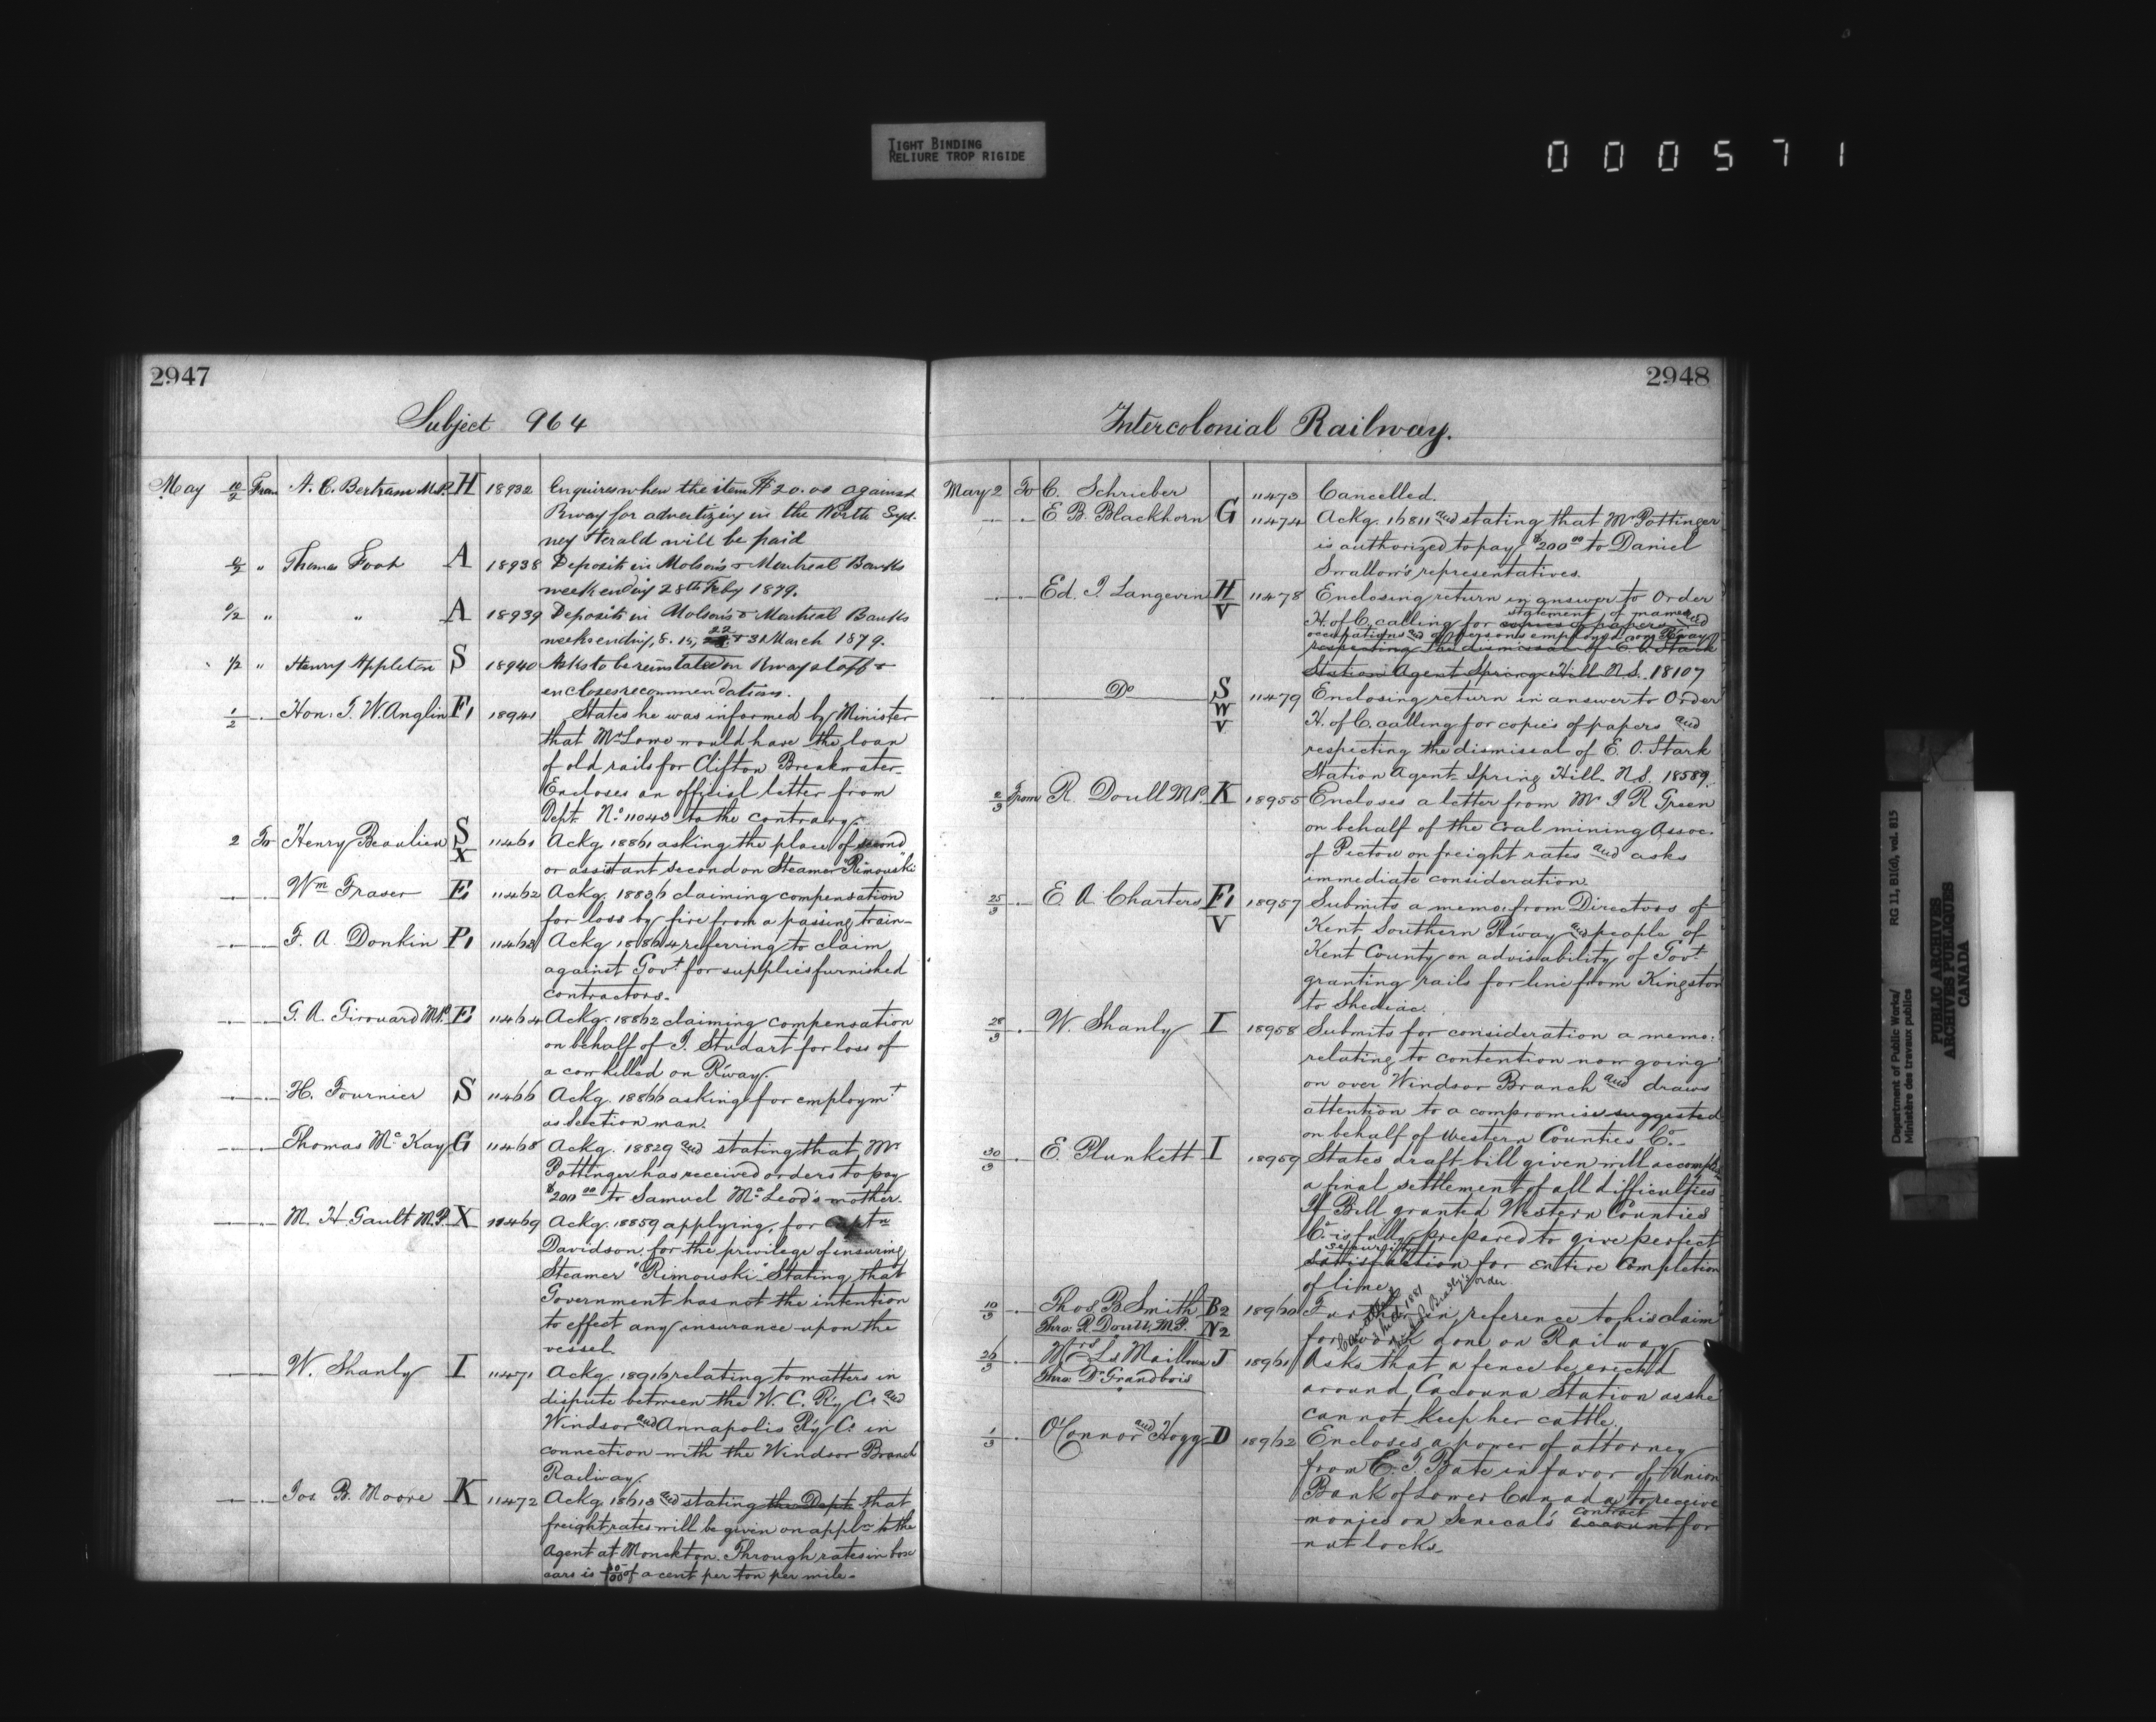 TIGHT BINDING
RELIURE TROP RIGIDE
000571
2947
Subject 964
May 10/2 From A. C. Bertram M.P. H 18932 Enquires when the item $20.00 against
Rway for advertizing in the North Syd-
ney Herald will be paid
" Thomas Foot A 18938 Deposit in Molson's & Montreal Banks
week ending 28th Feby 1879.
" " A 18939 Deposits in Molson's & Montreal Banks
weeks ending, 8. 15, 22 & 31 March 1879.
1/2 " Henry Appleton S 18940 Asks to be reinstated on Rway staff &
encloses recommendations.
1/2 Hon. T. W. Anglin F1 18941 States he was informed by Minister
that Mr Lowe would have the loan
of old rails for Clifton Breakwater-
Encloses an official letter from
Dept. No 11043 to the contrary.
2 To Henry Beaulieu S X 11461 Ackg. 18861 asking the place of second
or assistant second on Steamer "Rimouski"
Wm Fraser E 11462 Ackg. 18836 claiming compensation
for loss by fire from a passing train-
F. A. Donkin P1 11463 Ackg. 18864 referring to claim
against Govt for supplies furnished
contractors.
G. A. Girouard M.P. E 11464 Ackg. 18862 claiming compensation
on behalf of J. Studart for loss of
a cow killed on R'way.
H. Fournier S 11466 Ackg. 18866 asking for employmt
as section man.
Thomas McKay G 11468 Ackg. 18829 and stating that Mr
Pottinger has received orders to pay
$200 00 to Samuel McLeod's mother.
M. H. Gault M.P. X 11469 Ackg. 18859 applying, for Captn
Davidson, for the privilege of insuring
Steamer "Rimouski" Stating that
Government has not the intention
to effect any insurance upon the
vessel.
W. Shanly I 11471 Ackg. 18916 relating to matters in
dispute between the W. C. R'y Co and
Windsor and Annapolis R'y Co in
connection with the Windsor Branch
Railway.
Jos. B. Moore K 11472 Ackg. 18613 and stating the Dept that
freight rates will be given on appln to the
Agent at Monckton. Through rates in box
cars is of a cent per ton per mile.
2948
Intercolonial Railway.
May 2 To C. Schrieber 11473 Cancelled.
E B. Blackhorn G 11474 Ackg. 16811 and stating that Mr Pottinger
is authorized to pay $200 00 to Daniel
Smallow's representatives.
Ed. J. Langevin H V 11478 Enclosing return in answer to Order
H. of C. calling for copies of papers and statement of names and
occupations and of persons employed on R'way
respecting the dismissal of E. O. Stark
Station Agent Spring Hill N.S. 18107
Do S W V 11479 Enclosing return in answer to Order
H. of C. calling for copies of papers and
respecting the dismissal of E. O. Stark
Station Agent Spring Hill N.S. 18589.
2/3 From R. Doull M.P. K 18955 Encloses a letter from Mr J R Green
on behalf of the Coal mining Assoc.
of Pictou on freight rates and asks
immediate consideration.
25/3 E. A. Charters F1 V 18957 Submits a memo. from Directors of
Kent Southern R'way and people of
Kent County on advisability of Govt
granting rails for line from Kingston
to Shediac.
28/3 W. Shanly I 18958 Submits for consideration a memo.
relating to contention now going
on over Windsor Branch and draws
attention to a compromise suggested
on behalf of Western Counties Co.-
30/3 E. Plunkett I 18959 States draft bill given will accomplish
a final settlement of all difficulties
If Bill granted Western Counties
Co. is fully prepared to give perfect
satisfaction security for entire completion
of line.
10/3 Thos. B. Smith B2 18960 Further in reference to his claim
Thro. R. Doull, M.P. N2 for work done on Railway
26/3 Mrs Ls Mailloux J 18961 Asks that a fence be erected
Thro. Dr Grandbois around Cacouna Station as she
cannot keep her cattle.
1/3 O'Connor and Hogg D 18962 Encloses a power of attorney
from E. T. Bate in favor of Union
Bank of Lower Canada to receive
monies on Senecal's account contract for
nut locks.
Department of Public Works/
Ministère des travaux publics
RG 11, B1(d), vol. 815
PUBLIC ARCHIVES
ARCHIVES PUBLIQUES
CANADA